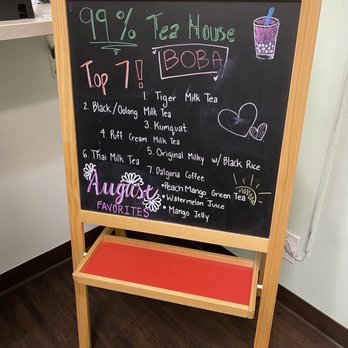 99% Tea House
BOBA
Top 7!
1. Tiger Milk Tea
2. Black/Oolong Milk Tea
3. Kumquat
4. Puff Cream Milk Tea
5. Original Milky w/ Black Rice
6. Thai Milk Tea
7. Dalgona Coffee
August
FAVORITES
• Peach Mango Green Tea
• Watermelon Juice
• Mango Jelly